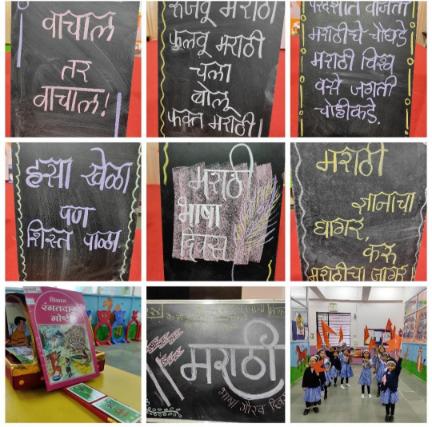 वाचाल
तर
वाचाल!
रुजवू मराठी
फुलवू मराठी
चला
बोलू
फक्त मराठी!
मराठीचे चौघडे
मराठी विश्व
वसे जगती
चोहीकडे.
हसा खेळा
पण
शिस्त पाळा
मराठी
भाषा
दिवस
मराठी
ज्ञानाचा
घागर,
करू
मराठीचा जागर
रंगतदार
गोष्टी
मराठी
भाषा गौरव दिवस